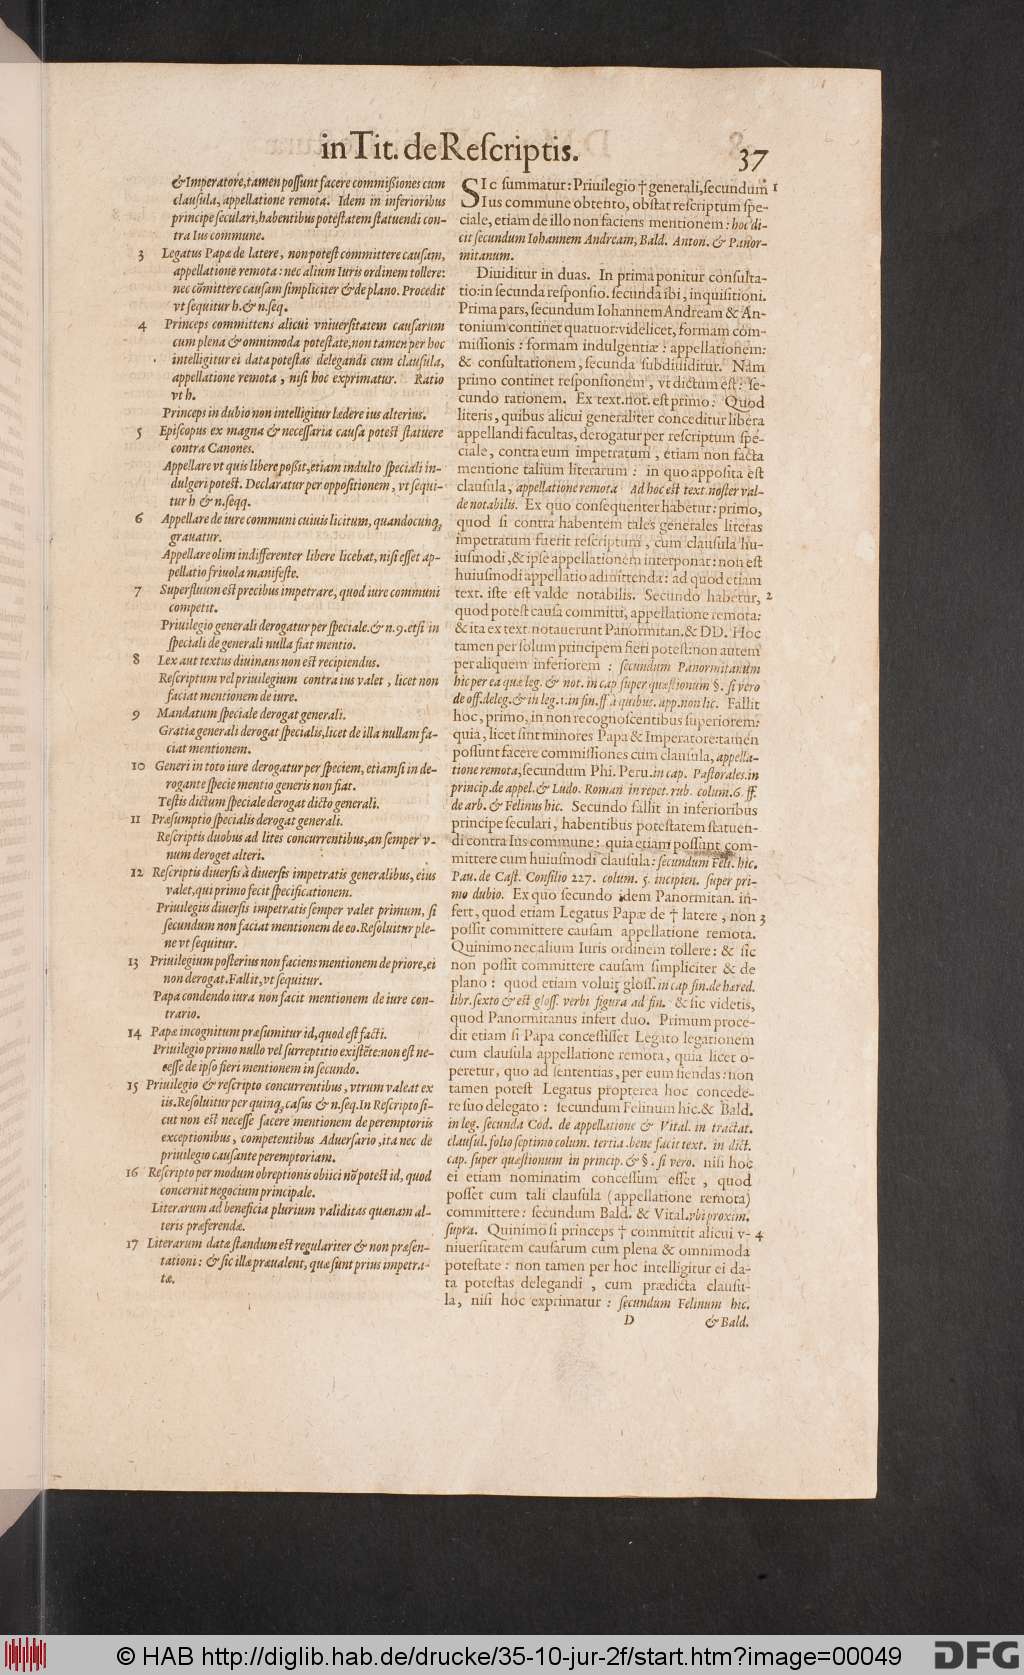 in Tit. de Reſcriptis.
37
& Imperatore, tamen poſſunt facere commiſſiones cum
clauſula, appellatione remota. Idem in inferioribus
principe ſeculari, habentibus poteſtatem ſtatuendi con-
tra Ius commune.
3 Legatus Papæ de latere, non poteſt committere cauſam,
appellatione remota: nec alium Iuris ordinem tollere:
nec cõmittere cauſam ſimpliciter & de plano. Procedit
vt ſequitur h. & n. ſeq.
4 Princeps committens alicui vniuerſitatem cauſarum
cum plena & omnimoda poteſtate, non tamen per hoc
intelligitur ei data poteſtas delegandi cum clauſula,
appellatione remota, niſi hoc exprimatur. Ratio
vt h.
Princeps in dubio non intelligitur lædere ius alterius.
5 Epiſcopus ex magna & neceſſaria cauſa poteſt ſtatuere
contra Canones.
Appellare vt quis libere poßit, etiam indulto ſpeciali in-
dulgeri poteſt. Declaratur per oppoſitionem, vt ſequi-
tur h & n. ſeqq.
6 Appellare de iure communi cuiuis licitum, quandocunq;
grauatur.
Appellare olim indifferenter libere licebat, niſi eſſet ap-
pellatio friuola manifeſte.
7 Superfluum eſt precibus impetrare, quod iure communi
competit.
Priuilegio generali derogatur per ſpeciale. & n. 9. etſi in
ſpeciali de generali nulla fiat mentio.
8 Lex aut textus diuinans non eſt recipiendus.
Reſcriptum vel priuilegium contra ius valet, licet non
faciat mentionem de iure.
9 Mandatum ſpeciale derogat generali.
Gratiæ generali derogat ſpecialis, licet de illa nullam fa-
ciat mentionem.
10 Generi in toto iure derogatur per ſpeciem, etiamſi in de-
rogante ſpecie mentio generis non fiat.
Teſtis dictum ſpeciale derogat dicto generali.
11 Præſumptio ſpecialis derogat generali.
Reſcriptis duobus ad lites concurrentibus, an ſemper v-
num deroget alteri.
12 Reſcriptis diuerſis à diuerſis impetratis generalibus, eius
valet, qui primo fecit ſpecificationem.
Priuilegiis diuerſis impetratis ſemper valet primum, ſi
ſecundum non faciat mentionem de eo. Reſoluitur ple-
ne vt ſequitur.
13 Priuilegium poſterius non faciens mentionem de priore, ei
non derogat. Fallit, vt ſequitur.
Papa condendo iura non facit mentionem de iure con-
trario.
14 Papæ incognitum præſumitur id, quod eſt facti.
Priuilegio primo nullo vel ſurreptitio exiſtẽte: non eſt ne-
ceſſe de ipſo fieri mentionem in ſecundo.
15 Priuilegio & reſcripto concurrentibus, vtrum valeat ex
iis. Reſoluitur per quinq; caſus & n. ſeq. In Reſcripto ſi-
cut non eſt neceſſe facere mentionem de peremptoriis
exceptionibus, competentibus Aduerſario, ita nec de
priuilegio cauſante peremptoriam.
16 Reſcripto per modum obreptionis obiici nõ poteſt id, quod
concernit negocium principale.
Literarum ad beneficia plurium validitas quænam al-
teris præferendæ.
17 Literarum datæ ſtandum eſt regulariter & non præſen-
tationi: & ſic illæ præualent, quæ ſunt prius impetra-
tæ.
SIc ſummatur: Priuilegio † generali, ſecundum 1
Ius commune obtento, obſtat reſcriptum ſpe-
ciale, etiam de illo non faciens mentionem: hoc di-
cit ſecundum Iohannem Andream, Bald. Anton. & Panor-
mitanum.
Diuiditur in duas. In prima ponitur conſulta-
tio: in ſecunda reſponſio. ſecunda ibi, inquiſitioni.
Prima pars, ſecundum Iohannem Andream & An-
tonium continet quatuor: videlicet, formam com-
miſſionis: formam indulgentiæ: appellationem:
& conſultationem, ſecunda ſubdiuiditur. Nam
primo continet reſponſionem, vt dictum eſt: ſe-
cundo rationem. Ex text. not. eſt primo: Quod
literis, quibus alicui generaliter conceditur libera
appellandi facultas, derogatur per reſcriptum ſpe-
ciale, contra eum impetratum, etiam non facta
mentione talium literarum: in quo appoſita eſt
clauſula, appellatione remota Ad hoc eſt text. noſter val-
de notabilis. Ex quo conſequenter habetur: primo,
quod ſi contra habentem tales generales literas
impetratum fuerit reſcriptum, cum clauſula hu-
iuſmodi, & ipſe appellationem interponat: non eſt
huiuſmodi appellatio admittenda: ad quod etiam
text. iſte eſt valde notabilis. Secundo habetur, 2
quod poteſt cauſa committi, appellatione remota:
& ita ex text. notauerunt Panormitan. & DD. Hoc
tamen per ſolum principem fieri poteſt: non autem
per aliquem inferiorem: ſecundum Panormitanum
hic per ea quæ leg. & not. in cap ſuper quæſtionum §. ſi vero
de off. deleg. & in leg. 1. in fin. ff a quibus. app. non lic. Fallit
hoc, primo, in non recognoſcentibus ſuperiorem:
quia, licet ſint minores Papa & Imperatore: tamen
poſſunt facere commiſſiones cum clauſula, appella-
tione remota, ſecundum Phi. Peru. in cap. Paſtorales. in
princip. de appel. & Ludo. Roman in repet. rub. colum. 6. ff.
de arb. & Felinus hic. Secundo fallit in inferioribus
principe ſeculari, habentibus poteſtatem ſtatuen-
di contra Ius commune: quia etiam poſſunt com-
mittere cum huiuſmodi clauſula: ſecundum Feli. hic.
Pau. de Caſt. Conſilio 227. colum. 5. incipien. ſuper pri-
mo dubio. Ex quo ſecundo idem Panormitan. in-
fert, quod etiam Legatus Papæ de † latere, non 3
poſſit committere cauſam appellatione remota.
Quinimo nec alium Iuris ordinem tollere: & ſic
non poſſit committere cauſam ſimpliciter & de
plano: quod etiam voluit gloſſ. in cap fin. de hæred.
libr. ſexto & eſt gloſſ. verbi figura ad fin. & ſic videtis,
quod Panormitanus infert duo. Primum proce-
dit etiam ſi Papa conceſſiſſet Legato legationem
cum clauſula appellatione remota, quia licet o-
peretur, quo ad ſententias, per eum fiendas: non
tamen poteſt Legatus propterea hoc concede-
re ſuo delegato: ſecundum Felinum hic. & Bald.
in leg. ſecunda Cod. de appellatione & Vital. in tractat.
clauſul. folio ſeptimo colum. tertia. bene facit text. in dict.
cap. ſuper quæſtionum in princip. & §. ſi vero. niſi hoc
ei etiam nominatim conceſſum eſſet, quod
poſſet cum tali clauſula (appellatione remota)
committere: ſecundum Bald. & Vital. vbi proxim.
ſupra. Quinimo ſi princeps † committit alicui v- 4
niuerſitatem cauſarum cum plena & omnimoda
poteſtate: non tamen per hoc intelligitur ei da-
ta poteſtas delegandi, cum prædicta clauſu-
la, niſi hoc exprimatur: ſecundum Felinum hic.
D & Bald.
© HAB http://diglib.hab.de/drucke/35-10-jur-2f/start.htm?image=00049
DFG